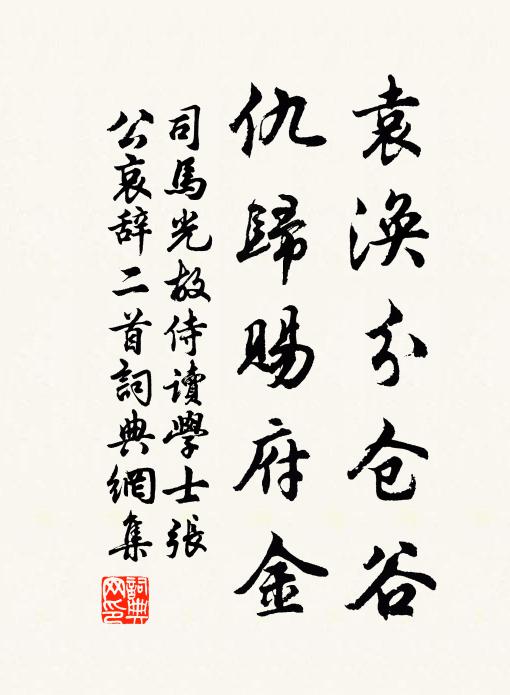 袁渙分仓谷
仇歸賜府金
司馬光故侍讀學士張
公哀辞二首詞典網集
詞典网印